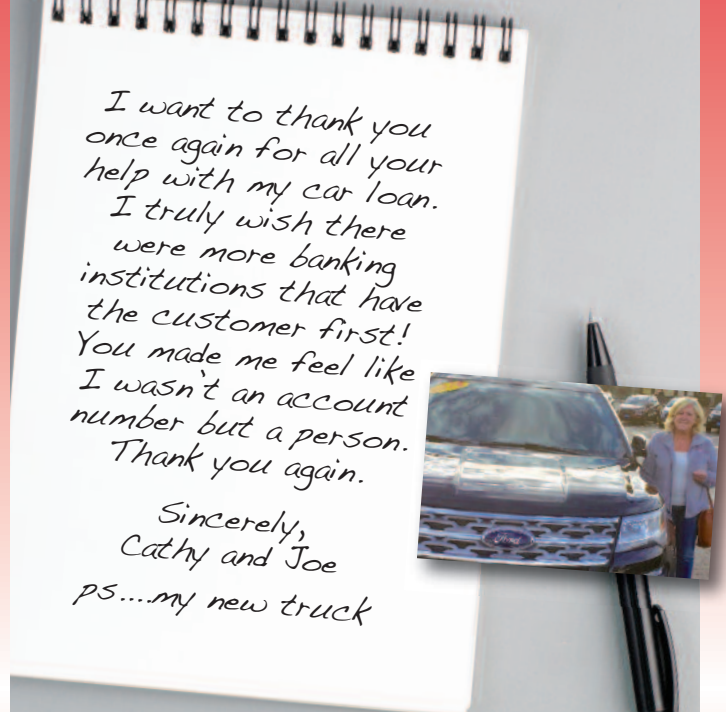 I want to thank you
once again for all your
help with my car loan.
I truly wish there
were more banking
institutions that have
the customer first!
You made me feel like
I wasn't an account
number but a person.
Thank you again.
Sincerely,
Cathy and Joe
ps....my new truck
Ford